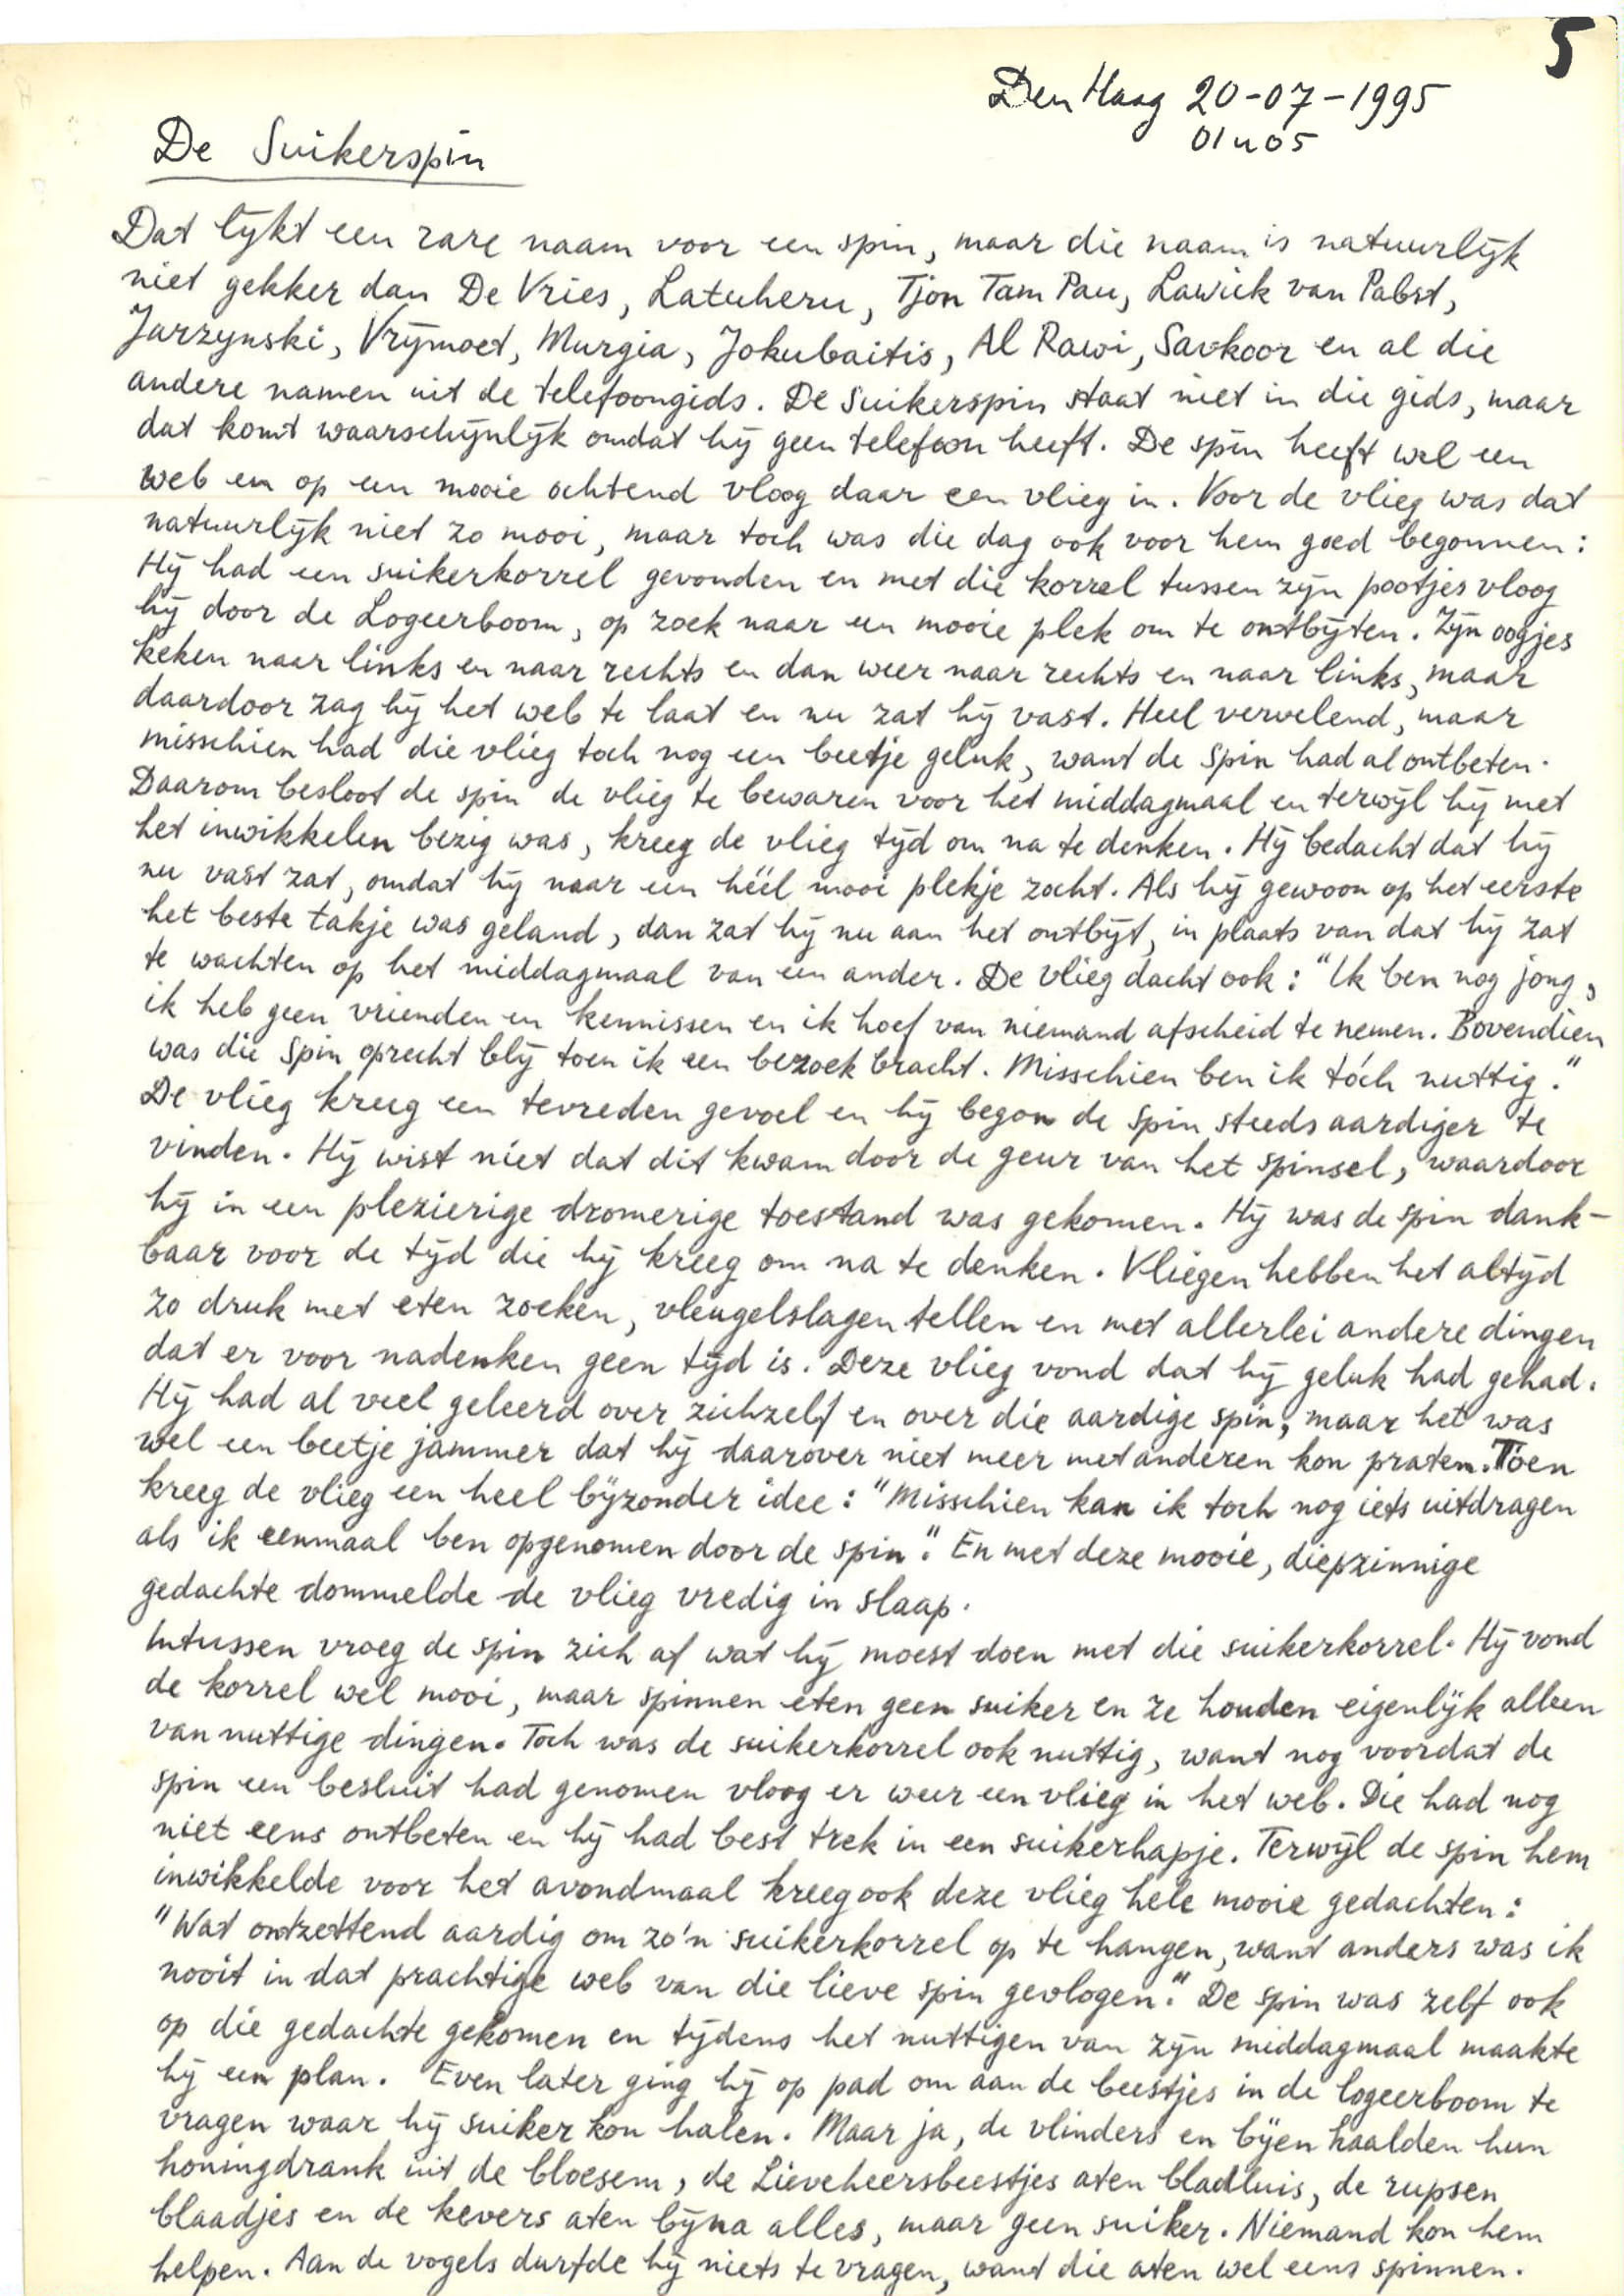 5
Den Haag 20-07-1995
01u05
De Suikerspin
Dat lijkt een rare naam voor een spin, maar die naam is natuurlijk
niet gekker dan De Vries, Latuheru, Tjon Tam Pau, Lawick van Pabst,
Jarzynski, Vrijmoet, Murgia, Jokubaitis, Al Rawi, Savkoor en al die
andere namen uit de telefoongids. De Suikerspin staat niet in die gids, maar
dat komt waarschijnlijk omdat hij geen telefoon heeft. De spin heeft wel een
web en op een mooie ochtend vloog daar een vlieg in. Voor de vlieg was dat
natuurlijk niet zo mooi, maar toch was die dag ook voor hem goed begonnen:
Hij had een suikerkorrel gevonden en met die korrel tussen zijn pootjes vloog
hij door de Logeerboom, op zoek naar een mooie plek om te ontbijten. Zijn oogjes
keken naar links en naar rechts en dan weer naar rechts en naar links, maar
daardoor zag hij het web te laat en nu zat hij vast. Heel vervelend, maar
misschien had die vlieg toch nog een beetje geluk, want de spin had al ontbeten.
Daarom besloot de spin de vlieg te bewaren voor het middagmaal en terwijl hij met
het inwikkelen bezig was, kreeg de vlieg tijd om na te denken. Hij bedacht dat hij
nu vast zat, omdat hij naar een héél mooi plekje zocht. Als hij gewoon op het eerste
het beste takje was geland, dan zat hij nu aan het ontbijt, in plaats van dat hij zat
te wachten op het middagmaal van een ander. De vlieg dacht ook: "Ik ben nog jong,
ik heb geen vrienden en kennissen en ik hoef van niemand afscheid te nemen. Bovendien
was die spin oprecht blij toen ik een bezoek bracht. Misschien ben ik tóch nuttig."
De vlieg kreeg een tevreden gevoel en hij begon de spin steeds aardiger te
vinden. Hij wist niet dat dit kwam door de geur van het spinsel, waardoor
hij in een plezierige dromerige toestand was gekomen. Hij was de spin dank-
baar voor de tijd die hij kreeg om na te denken. Vliegen hebben het altijd
zo druk met eten zoeken, vleugelslagen tellen en met allerlei andere dingen
dat er voor nadenken geen tijd is. Deze vlieg vond dat hij geluk had gehad.
Hij had al veel geleerd over zichzelf en over die aardige spin, maar het was
wel een beetje jammer dat hij daarover niet meer met anderen kon praten. Toen
kreeg de vlieg een heel bijzonder idee: "Misschien kan ik toch nog iets uitdragen
als ik eenmaal ben opgenomen door de spin". En met deze mooie, diepzinnige
gedachte dommelde de vlieg vredig in slaap.
Intussen vroeg de spin zich af wat hij moest doen met die suikerkorrel. Hij vond
de korrel wel mooi, maar spinnen eten geen suiker en ze houden eigenlijk alleen
van nuttige dingen. Toch was de suikerkorrel ook nuttig, want nog voordat de
spin een besluit had genomen vloog er weer een vlieg in het web. Die had nog
niet eens ontbeten en hij had best trek in een suikerhapje. Terwijl de spin hem
inwikkelde voor het avondmaal kreeg ook deze vlieg hele mooie gedachten:
"Wat ontzettend aardig om zo'n suikerkorrel op te hangen, want anders was ik
nooit in dat prachtige web van die lieve spin gevlogen." De spin was zelf ook
op die gedachte gekomen en tijdens het nuttigen van zijn middagmaal maakte
hij een plan. Even later ging hij op pad om aan de beestjes in de logeerboom te
vragen waar hij suiker kon halen. Maar ja, de vlinders en bijen haalden hun
honingdrank uit de bloesem, de Lieveheersbeestjes aten bladluis, de rupsen
blaadjes en de kevers aten bijna alles, maar geen suiker. Niemand kon hem
helpen. Aan de vogels durfde hij niets te vragen, want die aten wel eens spinnen.